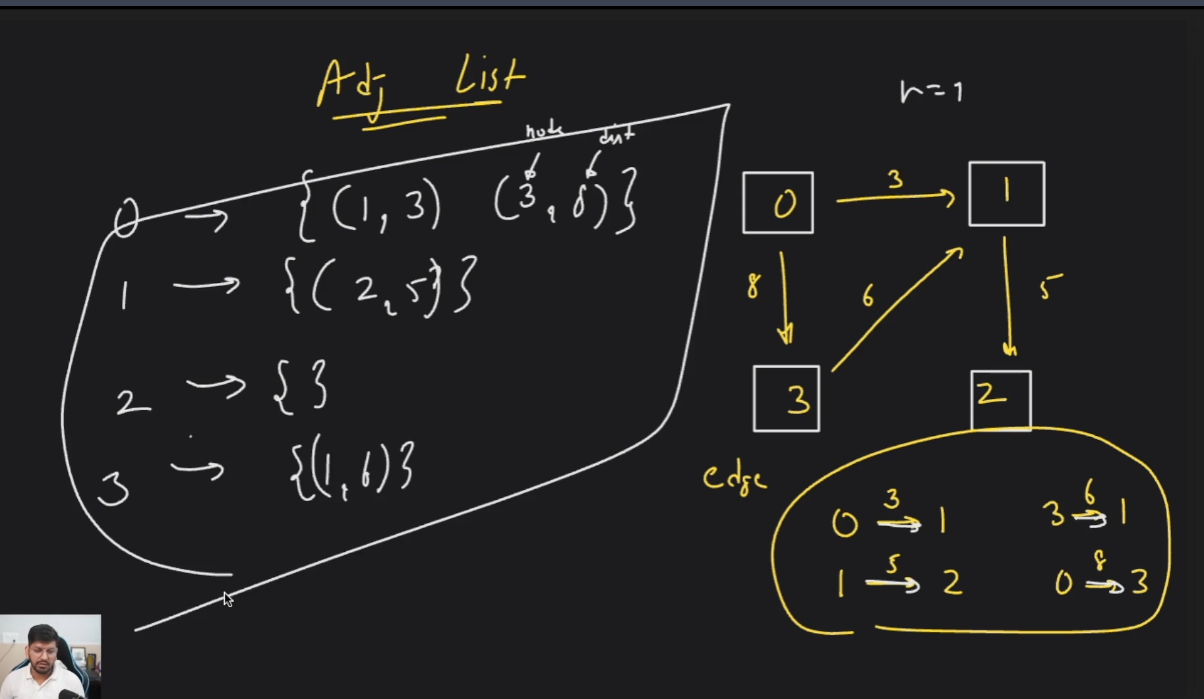 Adj List
n=1
node dist
0 → {(1, 3) (3, 8)}
1 → {(2, 5)}
2 → {}
3 → {(1, 6)}
0 3 1
8 6 5
3 2
edge
0 3→ 1 3 6→ 1
1 5→ 2 0 8→ 3